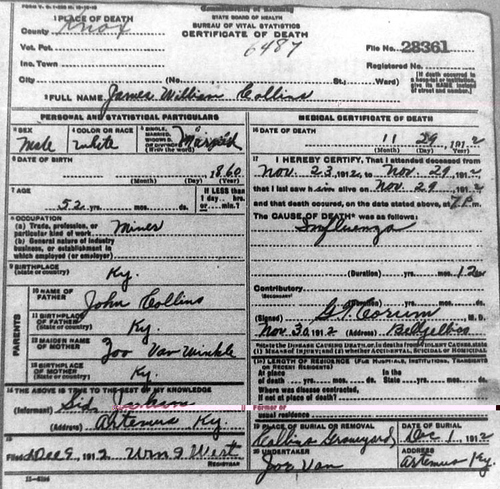 FORM V. S.
Commonwealth of Kentucky
STATE BOARD OF HEALTH
BUREAU OF VITAL STATISTICS
CERTIFICATE OF DEATH
1 PLACE OF DEATH
County Knox
6487
File No. 28361
Vot. Pct.
Registered No.
Inc. Town
City (No. St.; Ward)
[If death occurred in a hospital or institution, give its NAME instead of street and number.]
2 FULL NAME James William Collins
PERSONAL AND STATISTICAL PARTICULARS
3 SEX Male
4 COLOR OR RACE White
5 SINGLE, MARRIED, WIDOWED, OR DIVORCED (Write the word) Married
6 DATE OF BIRTH
1860
(Month) (Day) (Year)
7 AGE
52 yrs. mos. ds.
If LESS than 1 day, hrs. or min.?
8 OCCUPATION
(a) Trade, profession, or particular kind of work Miner
(b) General nature of industry business, or establishment in which employed (or employer)
9 BIRTHPLACE
(State or country) Ky.
PARENTS
10 NAME OF FATHER John Collins
11 BIRTHPLACE OF FATHER
(State or country) Ky.
12 MAIDEN NAME OF MOTHER Zoo Van Winkle
13 BIRTHPLACE OF MOTHER
(State or country) Ky.
14 THE ABOVE IS TRUE TO THE BEST OF MY KNOWLEDGE
(Informant) Sid Jackson
(Address) Artemus Ky.
15
Filed Dec 9, 1912 Wm F West
REGISTRAR
MEDICAL CERTIFICATE OF DEATH
16 DATE OF DEATH
11 29, 1912
(Month) (Day) (Year)
17 I HEREBY CERTIFY, That I attended deceased from
Nov. 23, 1912, to Nov. 29, 1912
that I last saw him alive on Nov. 29, 1912
and that death occurred, on the date stated above, at 7 P.m.
The CAUSE OF DEATH* was as follows:
Influenza
(Duration) yrs. mos. 12 ds.
Contributory
(SECONDARY)
(Duration) yrs. mos. ds.
(Signed) M. D.
Nov. 30, 1912 (Address)
*State the DISEASE CAUSING DEATH, or, in deaths from VIOLENT CAUSES, state (1) MEANS OF INJURY; and (2) whether ACCIDENTAL, SUICIDAL or HOMICIDAL
18 LENGTH OF RESIDENCE (FOR HOSPITALS, INSTITUTIONS, TRANSIENTS OR RECENT RESIDENTS)
At place of death yrs. mos. ds.
In the State yrs. mos. ds.
Where was disease contracted, if not at place of death?
Former or usual residence
19 PLACE OF BURIAL OR REMOVAL Collins Graveyard
DATE OF BURIAL Dec 1, 1912
20 UNDERTAKER Joe Van
ADDRESS Artemus Ky.